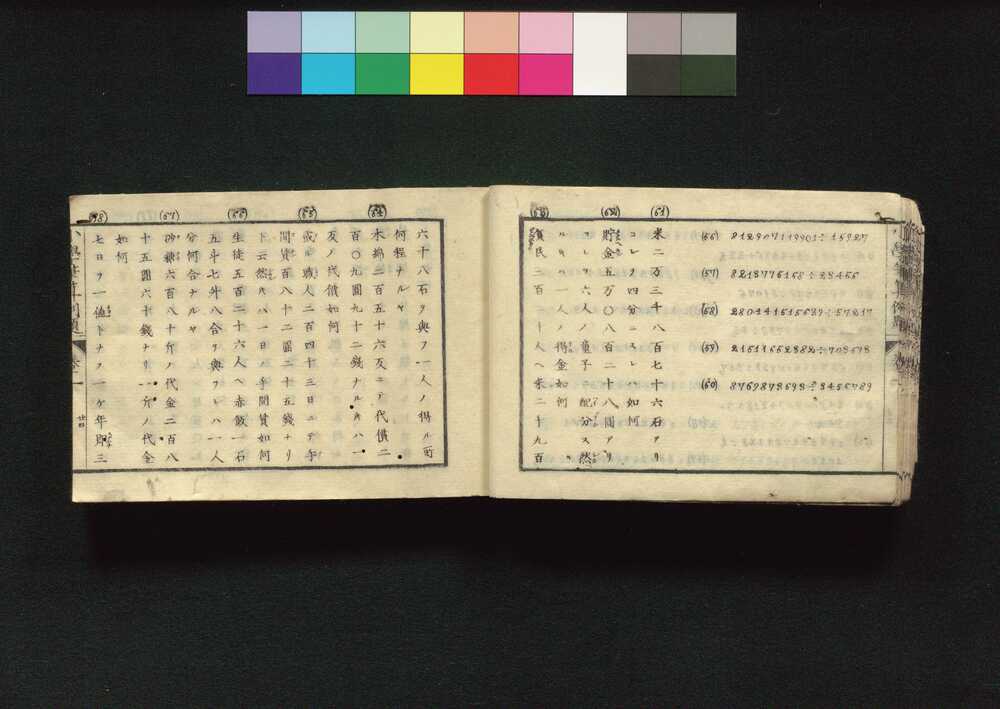 (56) 812907119901÷15927
(57) 8213776158÷23456
(58) 280141515639÷57217
(59) 21511552382÷708578
(60) 8769878698÷3456789
(61) 米二万三千八百七十六石アリ
コレヲ四分ニスレ如何
(62) 貯金五万〇八百二十八圓アリ
コレヲ六人ノ童子ニ配分ス然
ルキ一人ノ得金如何
(63) 貧民二百一十人ヘ米二十九百
六十八石ヲ與フ一人ノ得ル所
何程ナルヤ
(64) 木綿三百五十六反ニテ代價二
百〇九圓九十二錢ナルキハ一
反ノ代價如何
(65) 或ル職人二百四十三日ニテ手
間賃百八十二圓二十五錢ナリ
ト云然ルキハ一日ノ手間賃如何
(66) 生徒五百二十六人ヘ赤飯一石
五斗七升八合ヲ與フレハ一人
分何合ナルヤ
(67) 砂糖六百八十斤ノ代金二百八
十五圓六十錢ナリ一斤ノ代金
如何
(68) 七日ヲ一値トナヲ一ケ年即三
小學筆算例題
卷一